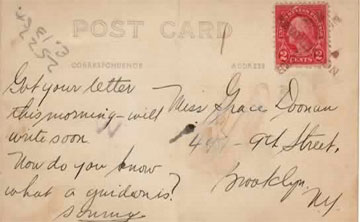 POST CARD
CORRESPONDENCE
ADDRESS
2 CENTS 2
Got your letter
this morning - will
write soon
Now do you know
what a guidon is?
Sonny
Miss Grace Doonan
9th Street,
Brooklyn,
N.Y.